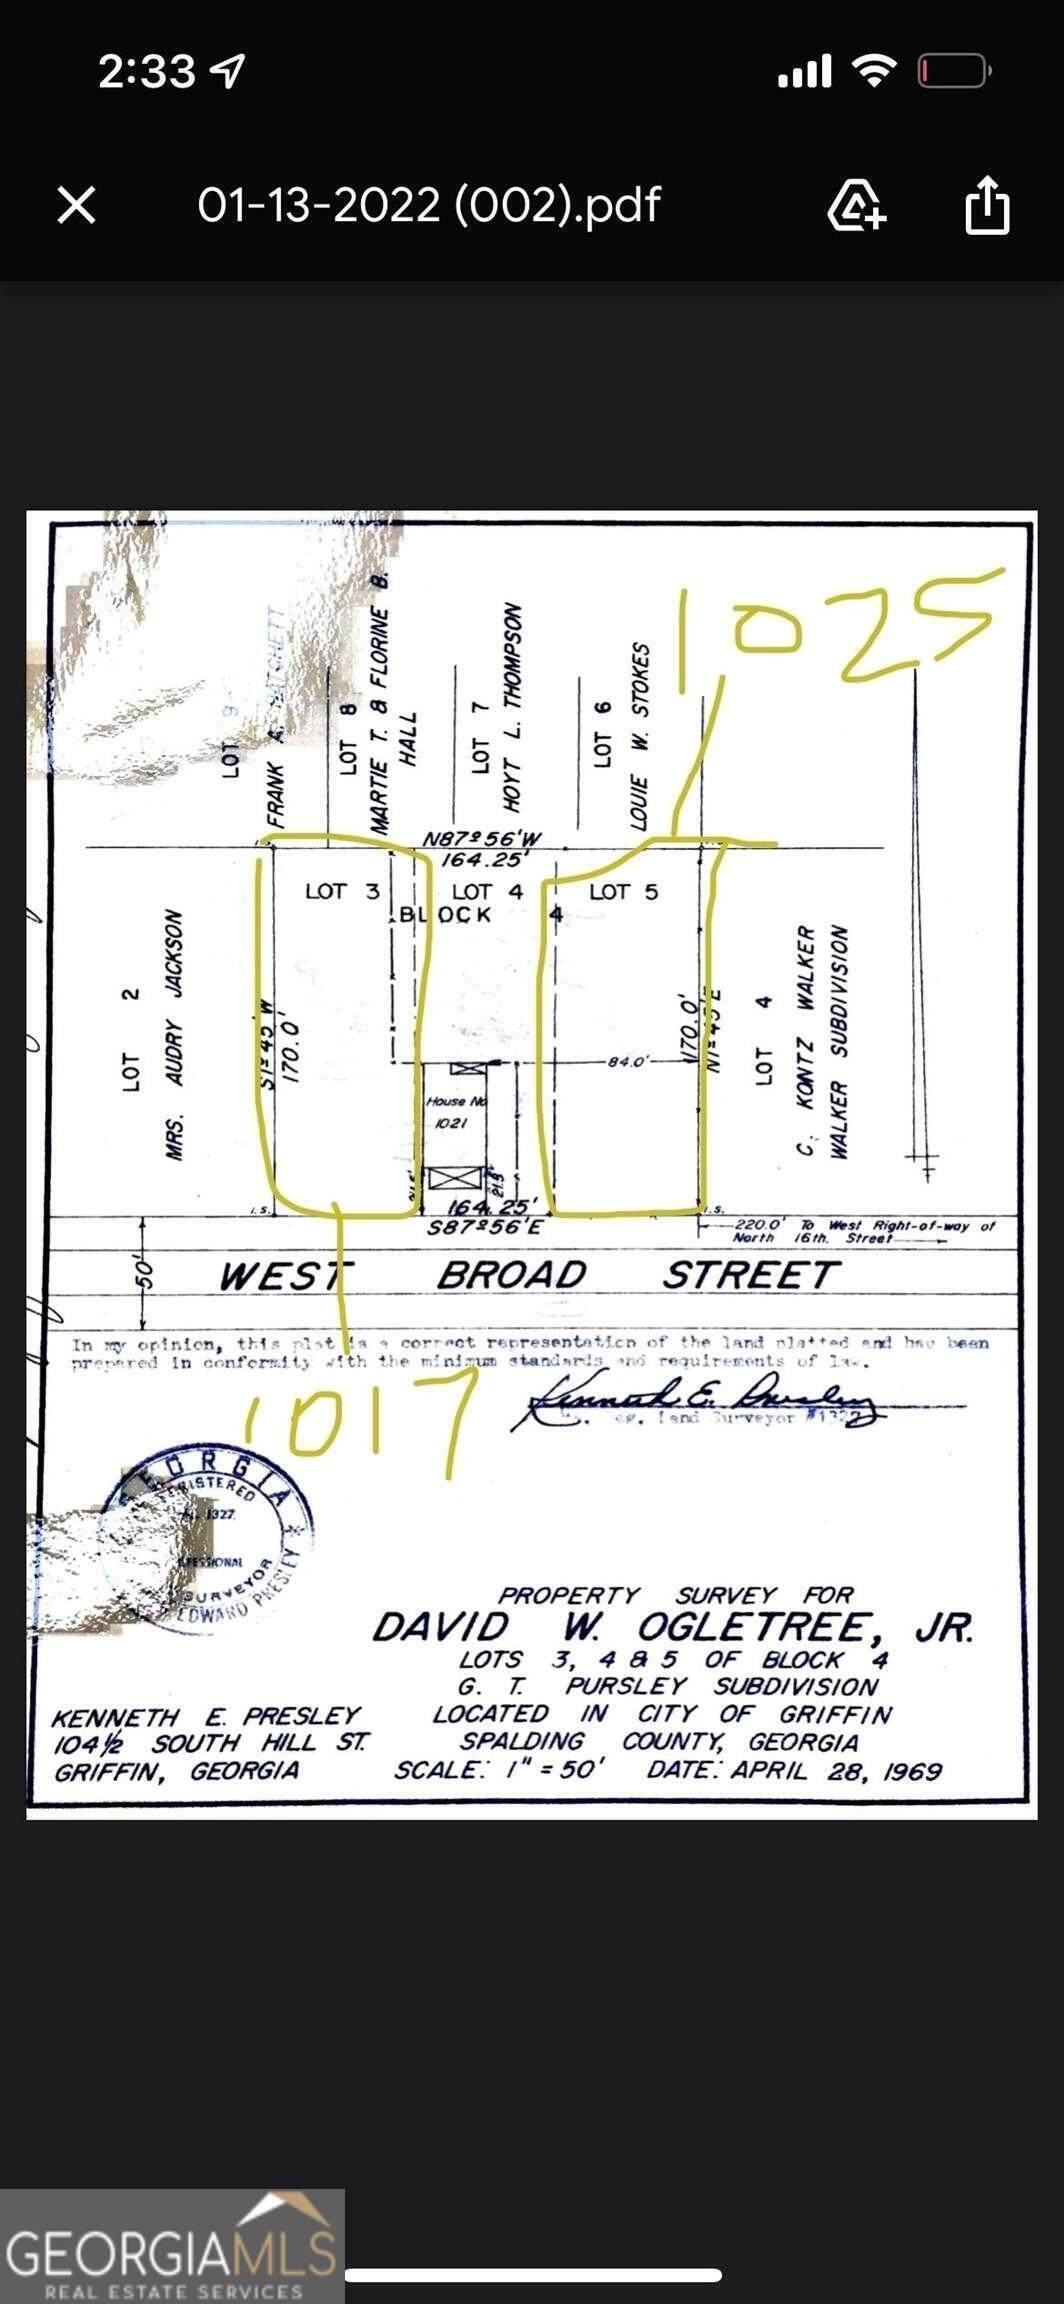 2:33
01-13-2022 (002).pdf
1025
LOT 9
FRANK A.
LOT 8
MARTIE T. & FLORINE B.
HALL
LOT 7
HOYT L. THOMPSON
LOT 6
LOUIE W. STOKES
N87°56'W
164.25'
LOT 3
LOT 4
LOT 5
BLOCK 4
LOT 2
MRS. AUDRY JACKSON
S1°45'W
170.0'
170.0'
N1°45'E
LOT 4
C. KONTZ WALKER
WALKER SUBDIVISION
84.0'
House No
1021
21.5'
I.S.
I.S.
164.25'
S87°56'E
220.0' To West Right-of-way of
North 16th. Street
50'
WEST BROAD STREET
In my opinion, this plat is a correct representation of the land platted and has been
prepared in conformity with the minimum standards and requirements of law.
1017
Kenneth E. Presley
Land Surveyor
GEORGIA
REGISTERED
1327
PROFESSIONAL
SURVEYOR
EDWARD PRESLEY
PROPERTY SURVEY FOR
DAVID W. OGLETREE, JR.
LOTS 3, 4 & 5 OF BLOCK 4
G. T. PURSLEY SUBDIVISION
KENNETH E. PRESLEY LOCATED IN CITY OF GRIFFIN
104½ SOUTH HILL ST. SPALDING COUNTY, GEORGIA
GRIFFIN, GEORGIA SCALE: 1" = 50' DATE: APRIL 28, 1969
GEORGIAMLS
REAL ESTATE SERVICES